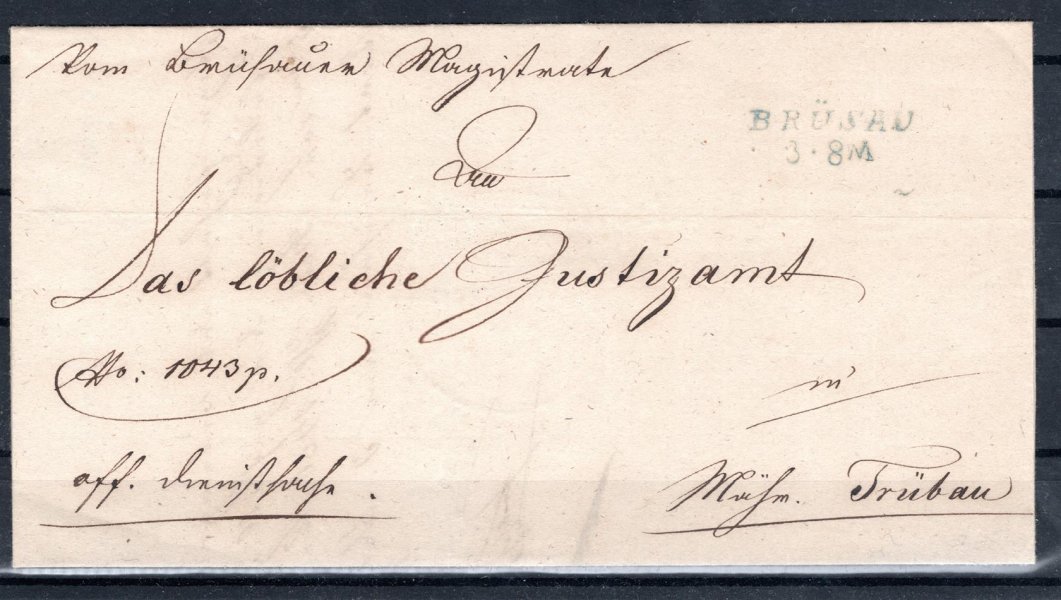 Vom Brüsauer Magistrate
BRÜSAU
3·8M
An
Das löbliche Justizamt
No: 1043 p.
in
off. Dienstsache.
Mähr. Trübau